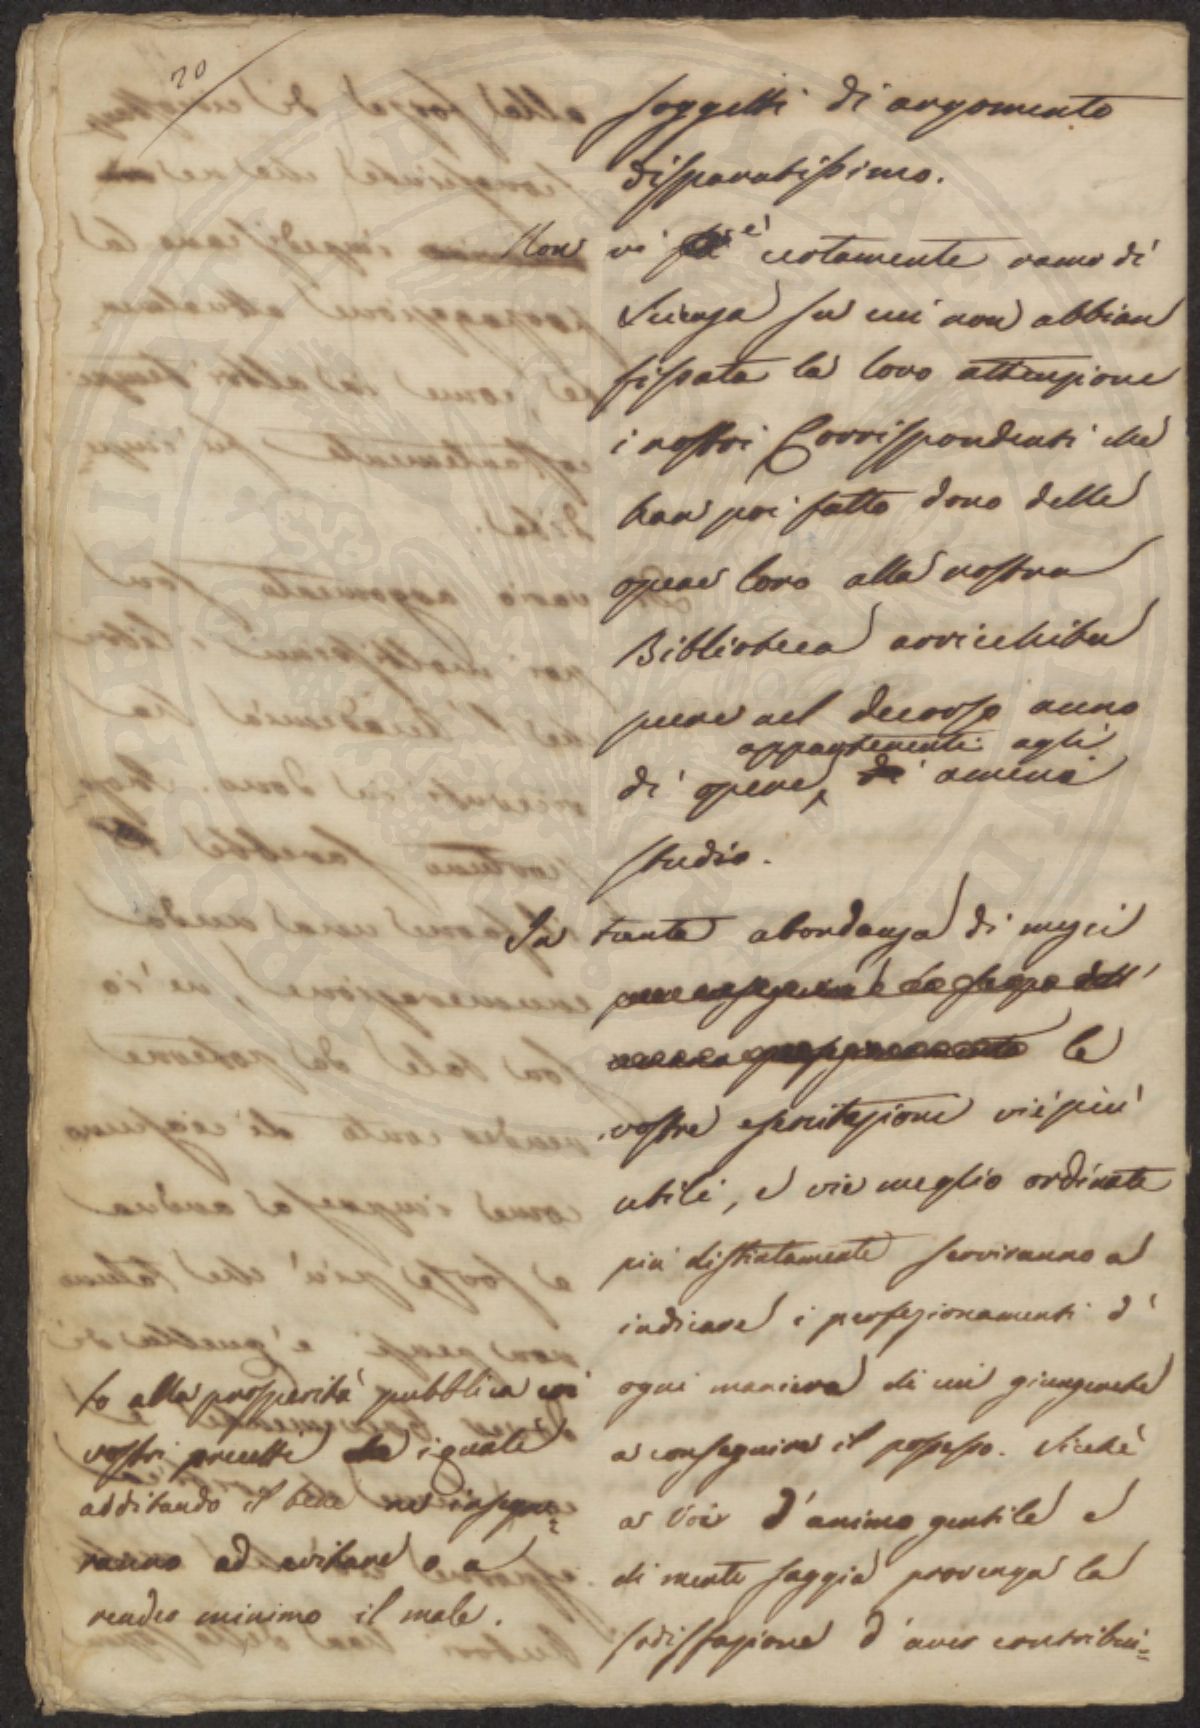 20
soggetti di argomento
disparatissimo.
Non vi è certamente ramo di
Scienza su cui non abbian
fissata la loro attenzione
i nostri Corrispondenti che
han poi fatto dono delle
opere loro alla nostra
Biblioteca arricchita
pure nel decorso anno
di opere, appartenenti agli ameni
studio.
In tanta abondanza di mezzi
le
vostre esercitazioni vie più
utili, e vie meglio ordinate
più distintamente serviranno a
indicare i perfezionamenti d'
ogni maniera di cui giungerete
a conseguire il possesso. Sicché
a Voi d'animo gentile e
di mente saggia provenga la
sodisfazione d'aver contribui=
to alla prosperità pubblica coi
vostri precetti i quali
additando il bene ne insegne=
ranno ad evitare o a
render minimo il male.